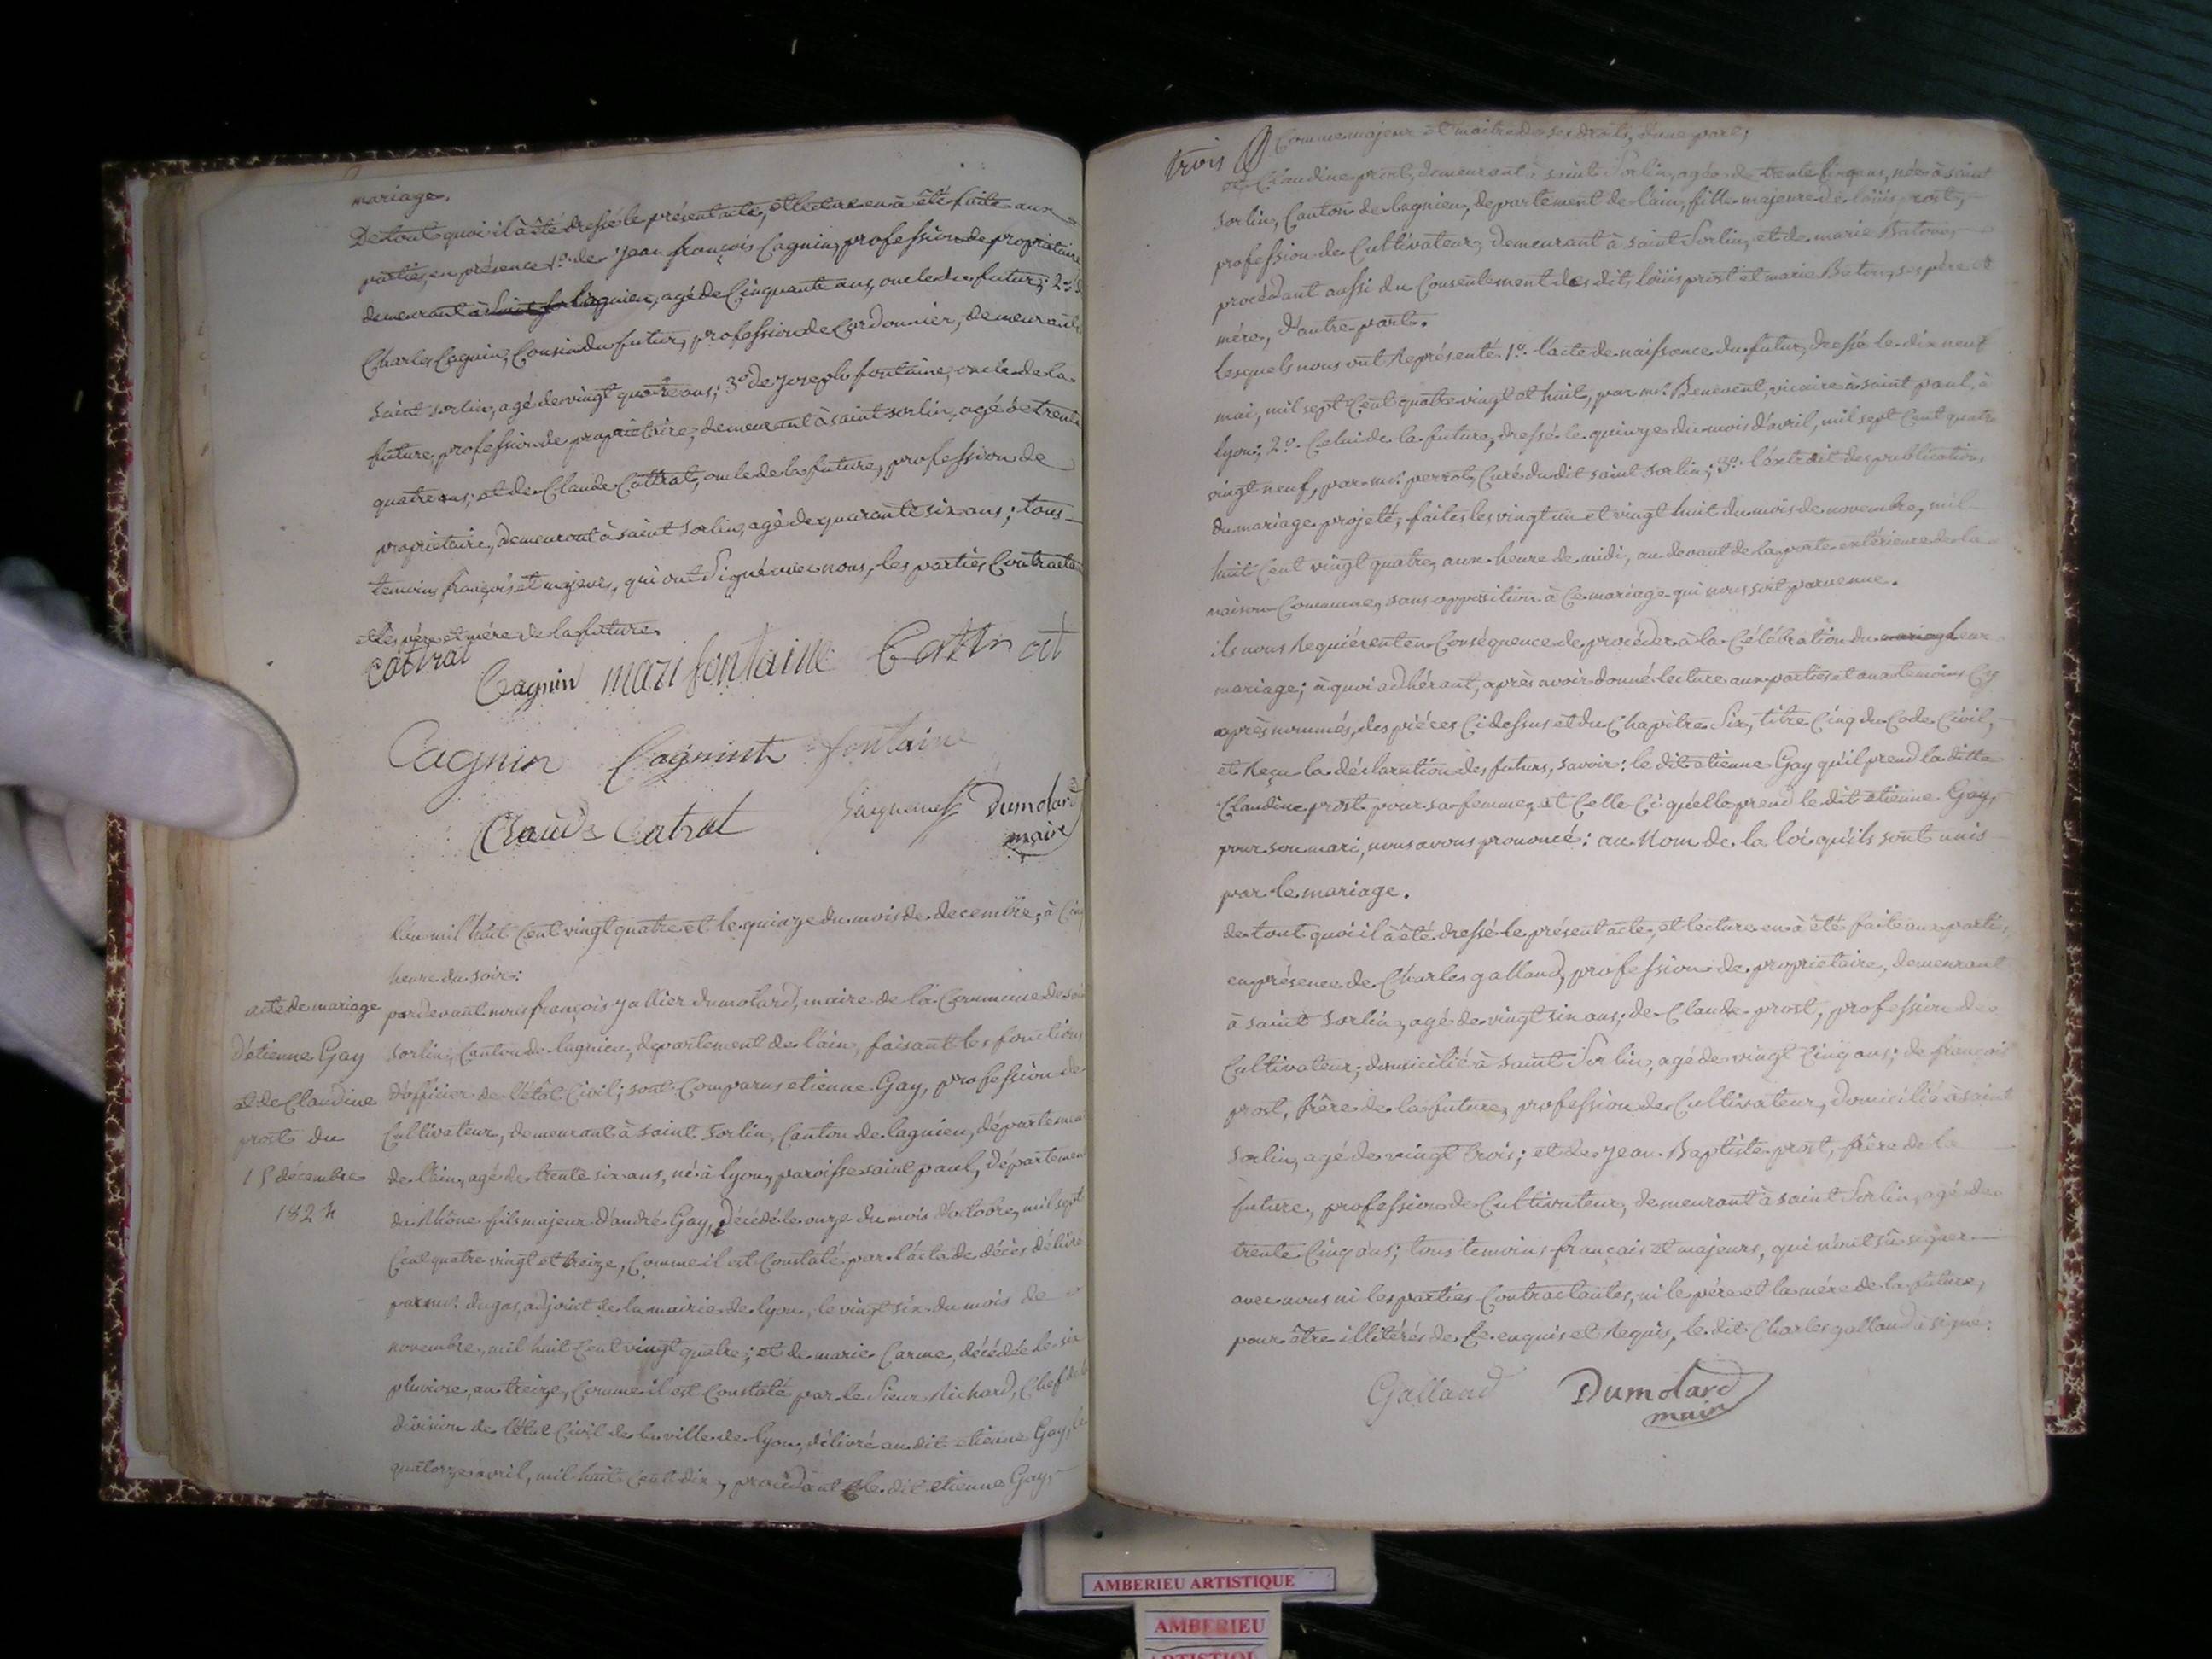 mariage.
De tout quoi il à été dressé le présent acte, et lecture en à été faite aux
parties, en présence 1º. de Jean françois Cagnin, profession de propriétaire
demeurant à Lagnieu, agé de Cinquante ans, oncle du futur; 2º. de
Charles Cagnin, Cousin du futur, profession de Cordonnier, demeurant à
saint sorlin, agé de vingt quatre ans; 3º. de joseph fontaine, oncle de la
future, profession de propriétaire, demeurant à saint sorlin, agé de trente
quatre ans; et de Claude Cattrat, oncle de la future, profession de
propriétaire, demeurant à saint sorlin, agé de quarante six ans; tous
temoins français et majeurs, qui ont Signé avec nous, les parties Contractantes
et les père et mère de la future.
Cattrat Cagnin mari fontaine
Cagnin Cagnint fontaine
Claude Catrat Dumolard
maire
L'an mil huit Cent vingt quatre et le quinze du mois de decembre, à Cinq
heure du soir:
acte de mariage
d'étienne Gay
et de Claudine
prost du
15 décembre
1824
par devant nous françois jallier dumolard, maire de la Commune de st
sorlin, Canton de lagnieu, departement de l'ain, faisant les fonctions
d'officier de l'état Civil; sont Comparus etienne Gay, profession de
Cultivateur, demeurant à saint sorlin, Canton de lagnieu, département
de l'ain, agé de trente six ans, né à lyon, paroisse saint paul, département
du Rhône fils majeur d'andré Gay, décédé le onze du mois d'octobre, mil sept
Cent quatre vingt et treize, Comme il est Constaté par l'acte de décès délivré
par mr. dugas, adjoint de la mairie de lyon, le vingt six du mois de
novembre, mil huit Cent vingt quatre; et de marie Carme, décédée le six
pluviose, an treize, Comme il est Constaté par le Sieur Richard, Chef de la
division de l'état Civil de la ville de lyon, délivré au dit etienne Gay, le
quatorze avril, mil huit Cent dix, procédant le dit etienne Gay,
trois
Comme majeur et maitre de ses droits, d'une part,
et Claudine prost, demeurant à saint Sorlin, agée de trente Cinq ans, née à saint
Sorlin, Canton de lagnieu, departement de l'ain, fille majeure de loüis prost,
profession de Cultivateur, demeurant à saint Sorlin, et de marie Baton,
procédant aussi du Consentement des dits loüis prost et marie Baton, ses père et
mère, d'autre part.
lesquels nous ont Représenté 1º. l'acte de naissance du futur, dressé le dix neuf
mai, mil sept Cent quatre vingt et huit, par mr. Benevent, vicaire à saint paul, à
lyon; 2º. Celui de la future, dressé le quinze du mois d'avril, mil sept Cent quatre
vingt neuf, par mr. perrot, Curé du dit saint sorlin; 3º. l'extrait des publications
du mariage projeté, faites les vingt un et vingt huit du mois de novembre, mil
huit Cent vingt quatre, aux heure de midi, au devant de la porte extérieure de la
maison Commune, sans opposition à Ce mariage qui nous soit parvenue.
ils nous Requiérent en Conséquence de procéder à la Célébration du mariag leur
mariage; à quoi adhérant, après avoir donné lecture aux parties et aux temoins Cy
après nommés, des pièces Ci dessus et du Chapitre Six, titre Cinq du Code Civil,
et Reçu la déclaration des futurs, savoir: le dit etienne Gay qu'il prend la ditte
Claudine prost pour sa femme, et Celle Ci qu'elle prend le dit etienne Gay,
pour son mari, nous avons prononcé: au Nom de la loi qu'ils sont unis
par le mariage.
de tout quoi il à été dressé le présent acte, et lecture en à été faite aux parties,
en présence de Charles galland, profession de propriétaire, demeurant
à saint Sorlin, agé de vingt six ans; de Claude prost, profession de
Cultivateur, domicilié à saint Sorlin, agé de vingt Cinq ans; de françois
prost, frère de la future, profession de Cultivateur, domicilié à saint
Sorlin, agé de vingt trois; et de jean Baptiste prost, frère de la
future, profession de Cultivateur, demeurant à saint Sorlin, agé de
trente Cinq ans; tous temoins français et majeurs, qui n'ont sû signer
avec nous ni les parties Contractantes, ni le père et la mére de la future,
pour être illitérés de Ce enquis et Requis, le dit Charles galland à signé.
Galland Dumolard
maire
AMBERIEU ARTISTIQUE
AMBERIEU
ARTISTIQUE